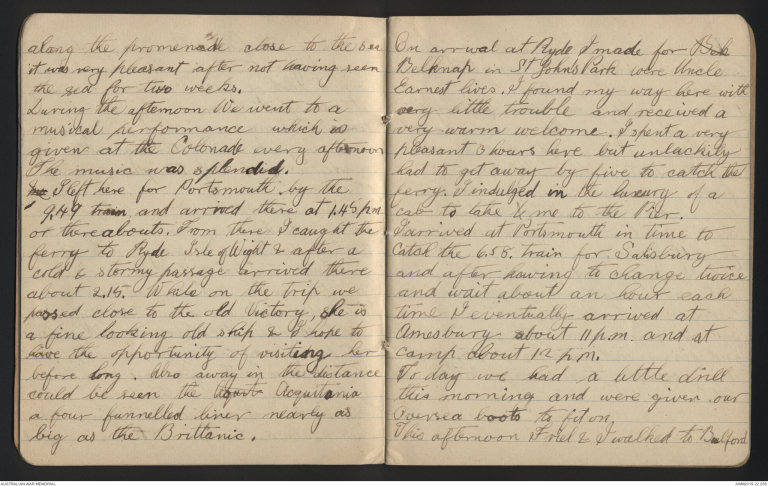 along the promenade close to the sea
it was very pleasant after not having seen
the sea for two weeks.
During the afternoon We went to a
musical performance which is
given at the Colonade every afternoon
The music was splendid.
I left here for Portsmouth by the
9.49 train and arrived there at 1.45 pm
or thereabouts. From there I caught the
ferry to Ryde Isle of Wight & after a
cold & stormy passage arrived there
about 2.15. While on the trip we
passed close to the old Victory, she is
a fine looking old ship & I hope to
have the opportunity of visiting her
before long. Also away in the distance
could be seen the Acquitania
a four funnelled liner nearly as
big as the Brittanic.
On arrival at Ryde I made for
Belknap in St Johns Park were Uncle
Earnest lives. I found my way here with
very little trouble and received a
very warm welcome. I spent a very
pleasant 3 hours here but unluckily
had to get away by five to catch the
ferry. I indulged in the luxury of a
cab to take me to the Pier.
I arrived at Portsmouth in time to
catch the 6.58. train for Salisbury
and after having to change twice
and wait about an hour each
time I eventually arrived at
Amesbury about 11 p.m. and at
camp about 12 p.m.
To day we had a little drill
this morning and were given our
Oversea boots to fit on
This afternoon Friel & I walked to Bulford
AUSTRALIAN WAR MEMORIAL